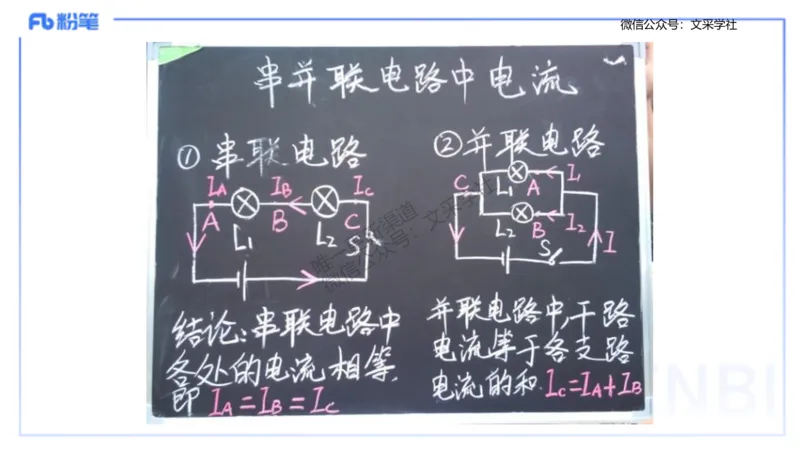 粉笔
微信公众号：文采学社
串并联电路中电流
①串联电路
②并联电路
I_A I_B I_C
A B C
L₁ L₂ S
I₁
C L₁ A
L₂ B I₂
S I
结论：串联电路中
各处的电流相等，
即 I_A=I_B=I_C
并联电路中，干路
电流等于各支路
电流的和 I_C=I_A+I_B
微信公众号：文采学社
NBI